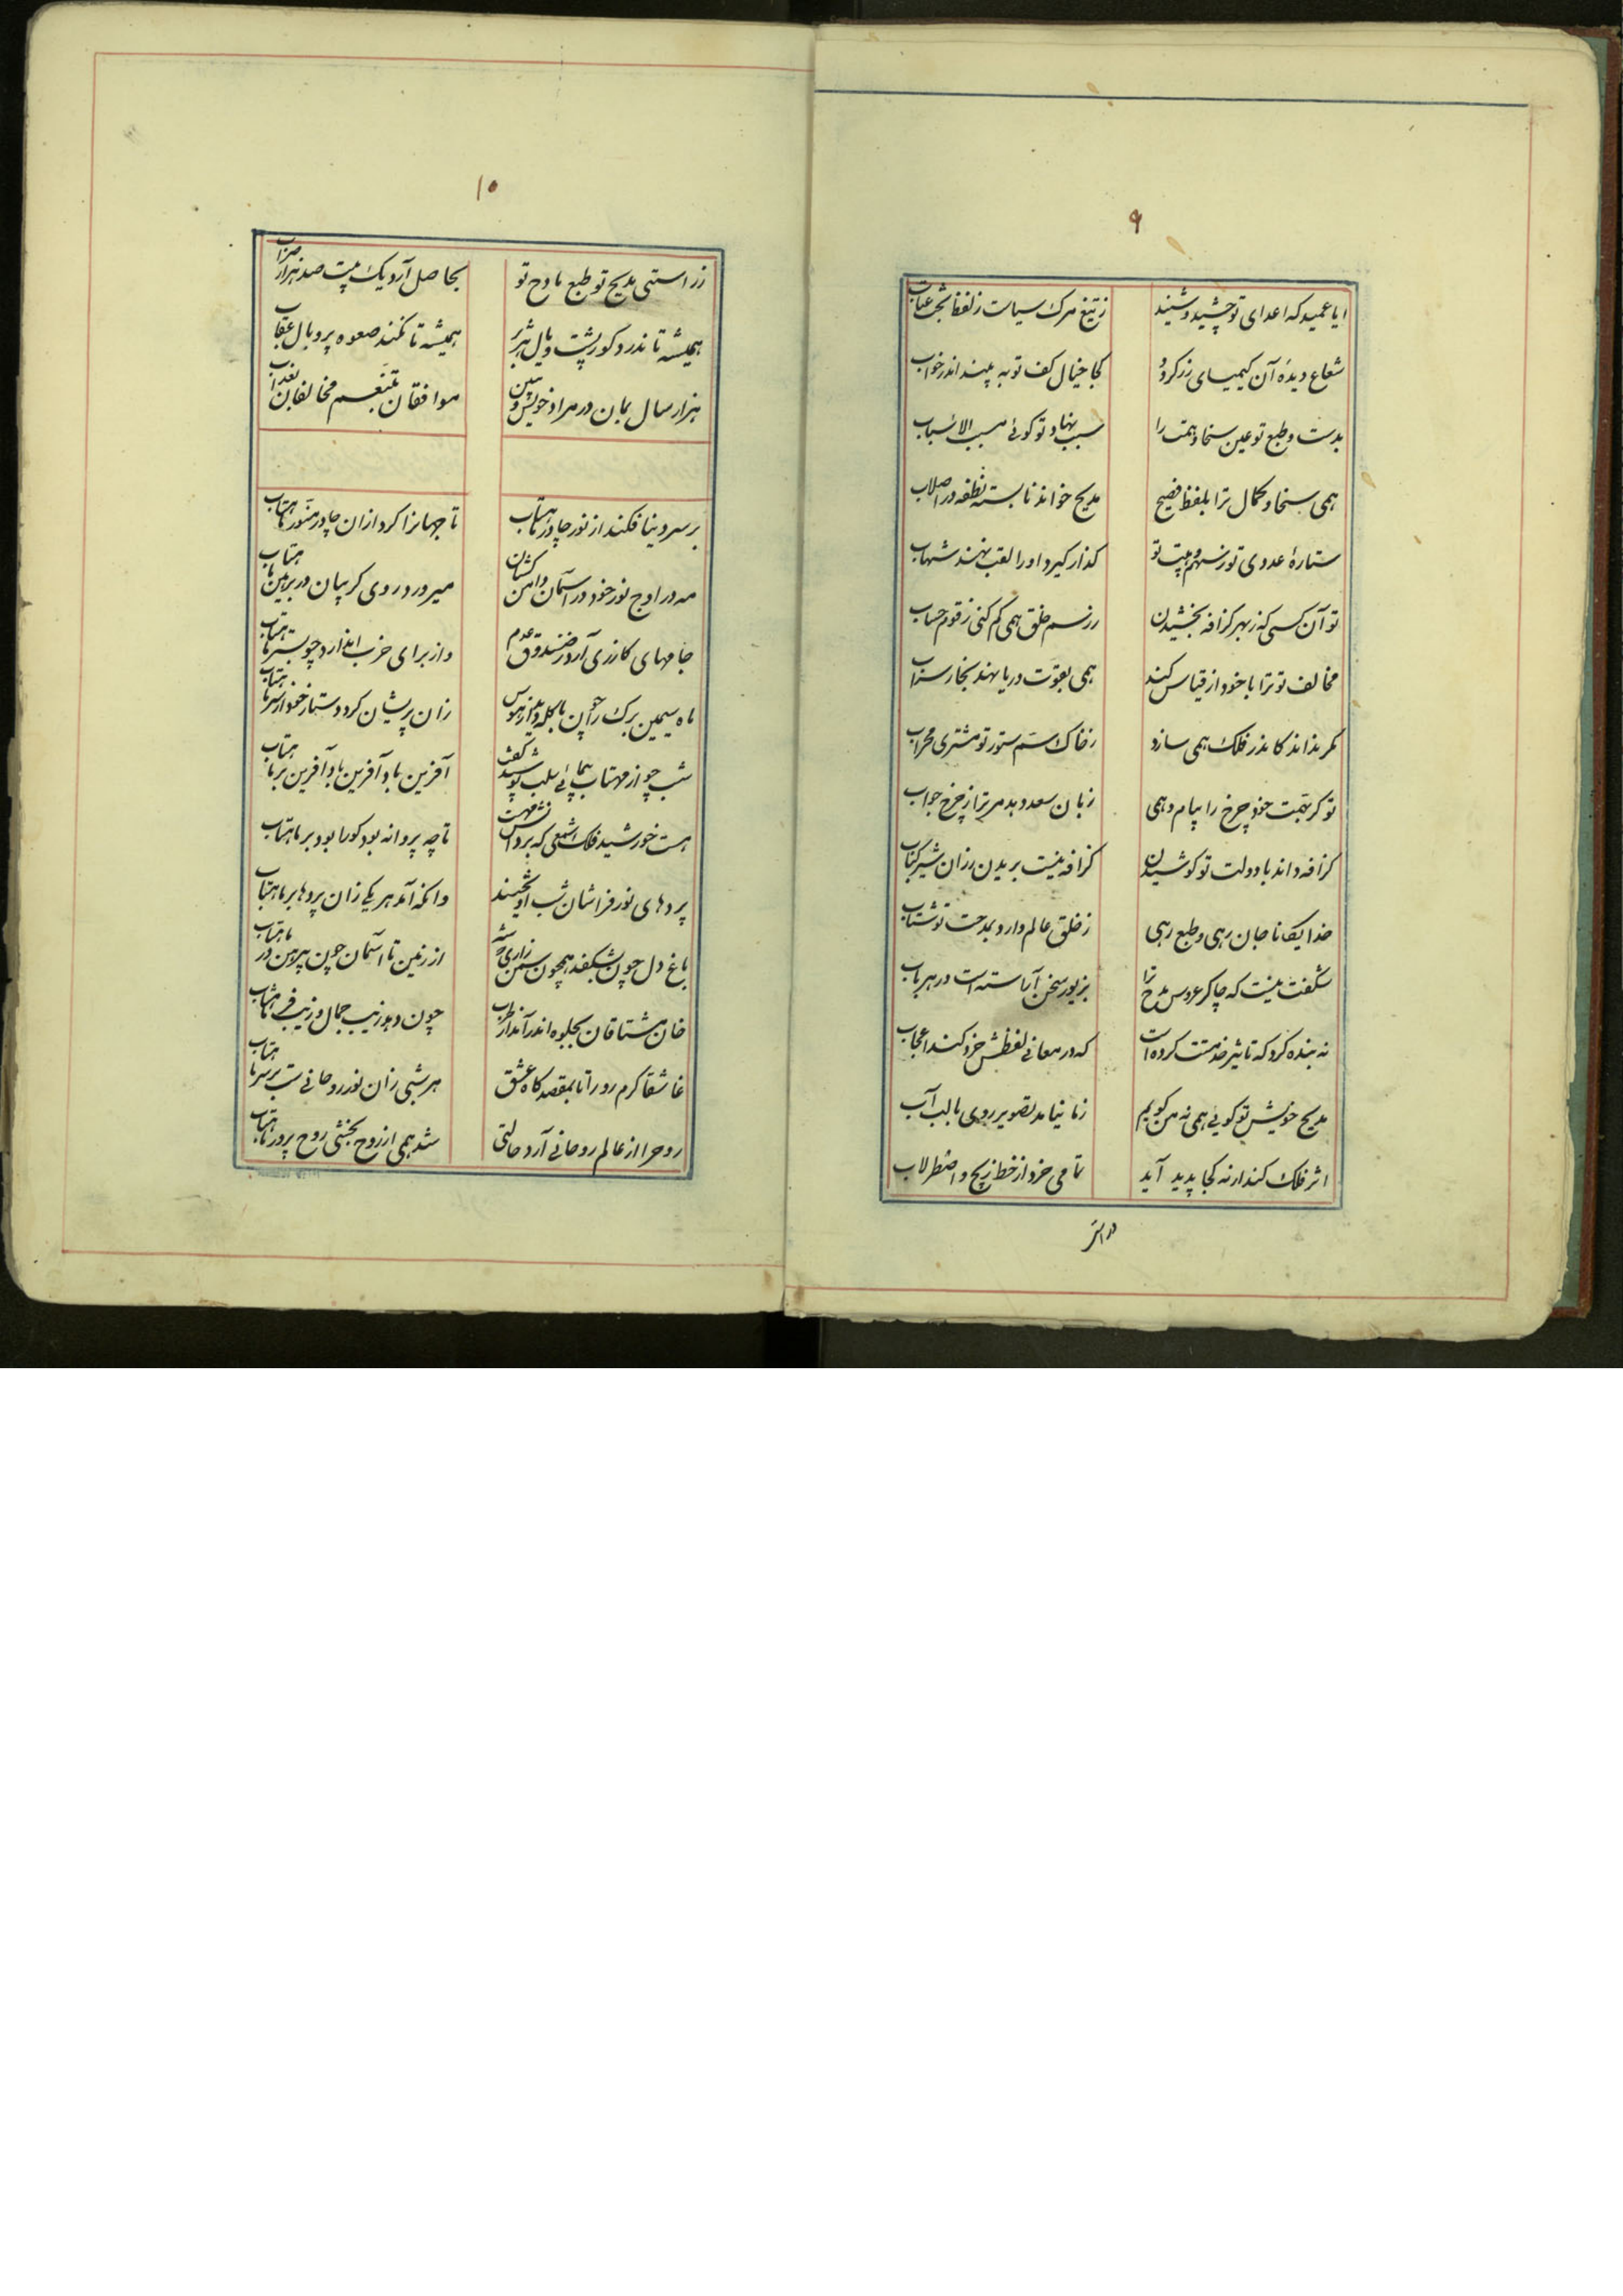 ۹
ایا عمید که اعدای تو چشید و شنید ز تیغ مرک سیاست ز لفظ
شعاع دیده آن کیمیای زر کردد کجا خیال کف تو به بیند اندر خواب
بدست و طبع تو عین سخا و همت را سبب نهاد تو کوئی مسبب الاسباب
همی سخا و کمال ترا بلفظ فصیح مدیح خواند نابسته نطفه در اصلاب
ستارهٔ عدوی تو ز سهم و هیبت تو کذار کیرد او را لقب نهند شهاب
تو آن کسی که ز بهر کزافه بخشیدن ز رسم خلق همی کم کنی رقوم حساب
مخالف تو ترا با خود از قیاس کند همی بقوت دریا نهند بخار سراب
مکر نداند کاندر فلک همی سازد ز خاک سم ستور تو مشتری محراب
تو کر بهمت خود چرخ را پیام دهی زبان سعد دهد مر ترا ز چرخ جواب
کزافه داند با دولت تو کوشیدن کزافه نیست بریدن ز ران شیر کباب
خدایکانا جان رهی و طبع رهی ز خلق عالم دارد بمدحت تو شتاب
شکفت نیست که چاکر عروس مدح ترا بزیور سخن آراسته است در هر باب
نه بنده کرد که تاثیر خدمتت کرده است که در معانی لفظش خرد کند اعجاب
مدیح خویش تو کویی همی نه من کویم زمانیا مد بتصویر روی بالب آب
اثر فلک کند ار نه کجا پدید آید تمامی خرد از خط زیج و اضطرلاب
در استی
۱۰
ز راستی مدیح تو طبع مادح تو بحاصل آرد یک بیت صد هزار صواب
همیشه تا ندرد کور پشت و یال هژبر همیشه تا نکند صعوه پر و بال عقاب
هزار سال بمان در مراد خویش و ببین موافقان بتنعم مخالفان بعذاب
بر سر دنیا فکند از نور چادر ماهتاب تا جهانرا کرد ازان چادر منور ماهتاب
مه در اوج نور خود در آسمان دامن کشان میرود در روی کریبان در بر بین ماهتاب
جامهای کازری آرد ز صندوق عدم واز برای خرب اندازد چو بستر ماهتاب
ماه سیمین برک را چون با کله دید از هوس زان پریشان کرد دستار خود از سر ماهتاب
شب چو از مهتاب یمائی سلب پوشید کفت آفرین باد آفرین باد آفرین بر ماهتاب
هست خورشید فلک شمعی که پروانش مهست تا چه پروانه بود کورا بود پر ماهتاب
پردهای نور فراشان شب آویختند وانکه آمد هر یکی زان پردها بر ماهتاب
باغ دل چون بشکفد همچون سمن زاری شده از زمین تا آسمان چون پیرهن در ماهتاب
خان مشتاقان بجلوه اندر آمد از طرب چون دهد زیب جمال و زینت فر ماهتاب
عاشقا کرم رو را تا بمقصد کاه عشق هر شبی زان نور روحانی ست بر سر ماهتاب
روح را از عالم روحانی آرد حالتی شد همی از روح بخشی روح پرور ماهتاب